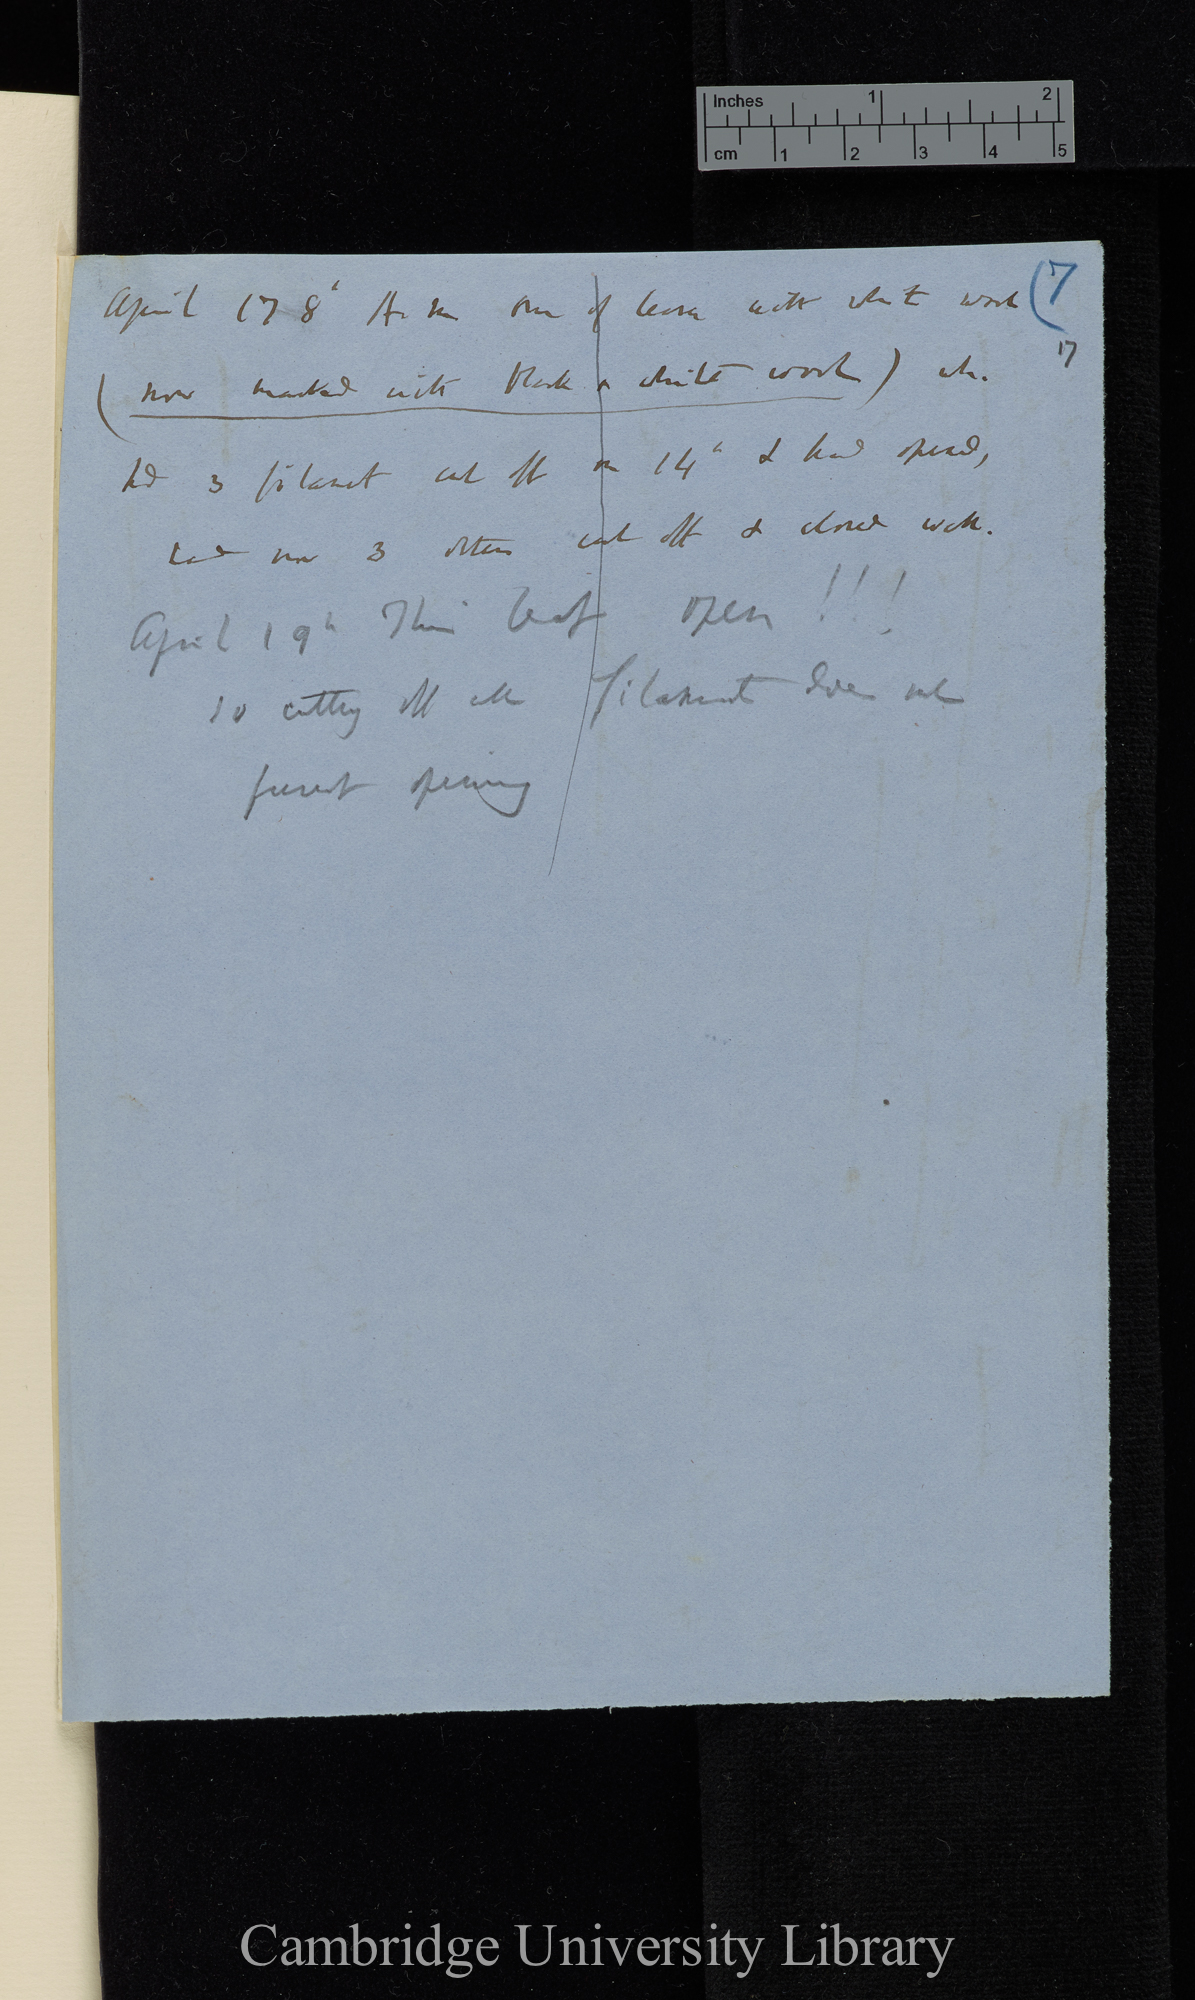 Inches 1 2
cm 1 2 3 4 5
(7
17
April 17 8h A.m one of leaves with white wool
(now marked with black & white wool) wh.
had 3 filaments cut off on 14th & had opened,
had now 3 others cut off & closed well.
April 19th This leaf open!!!
so cutting off all filaments does not
prevent opening
Cambridge University Library